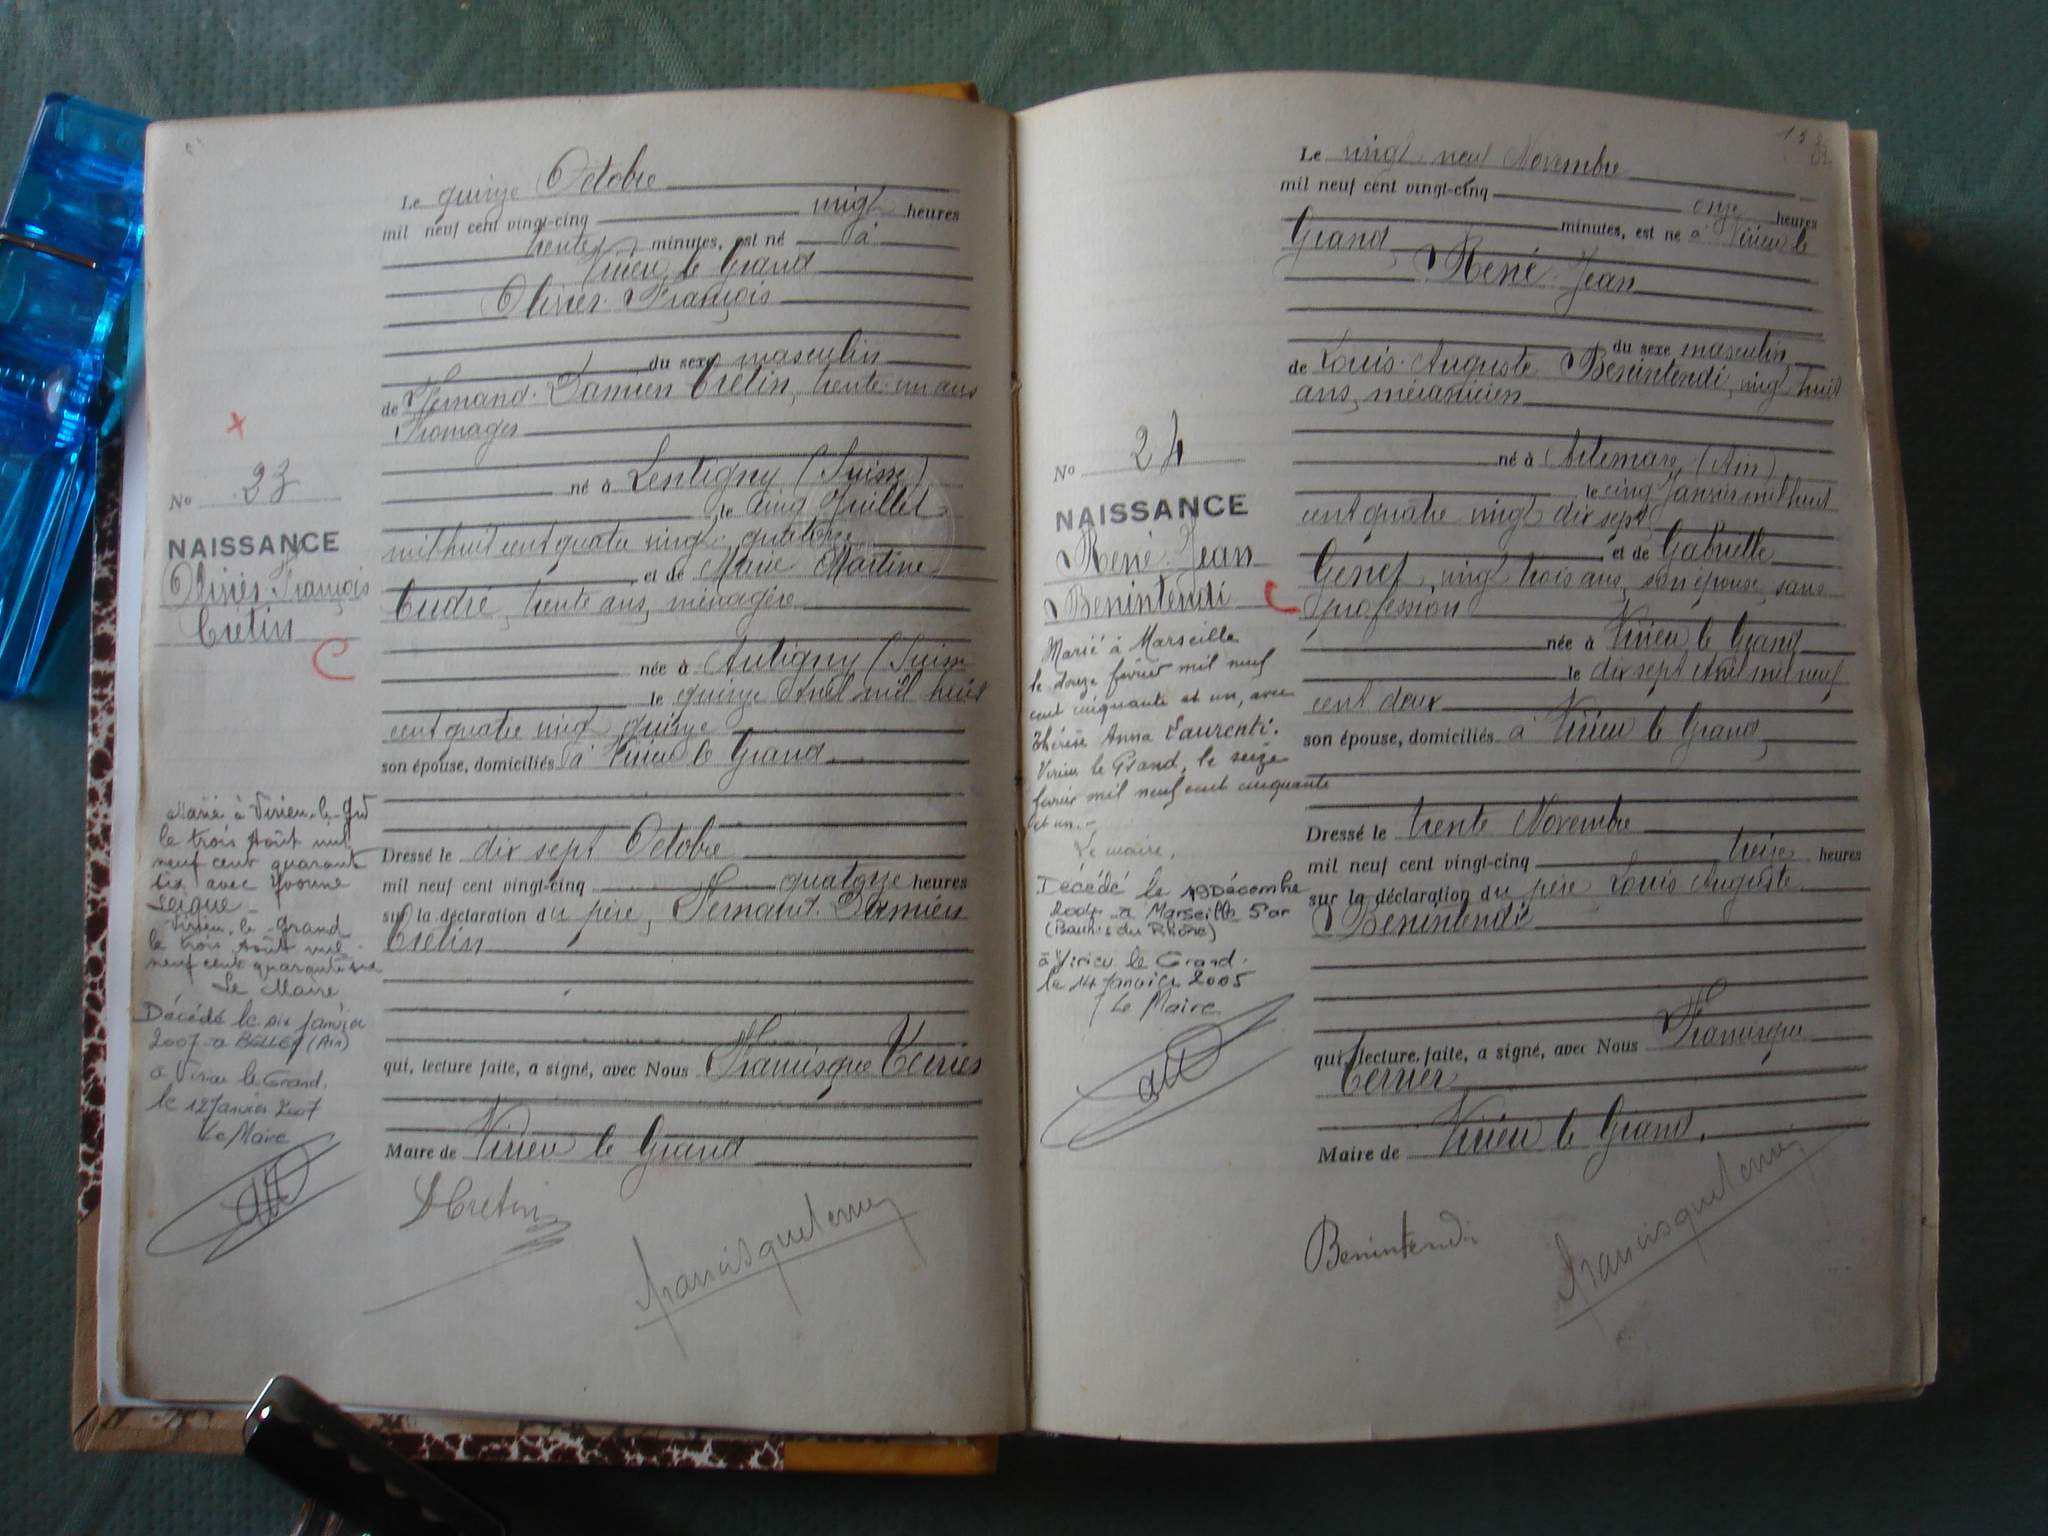 Le quinze Octobre
mil neuf cent vingt-cinq vingt heures
trente minutes, est né à
Virieu le Grand
Olivier François
du sexe masculin
de Fernand Damien Cretin, trente un ans
Fromages
né à Lentigny (Suisse)
le cinq Juillet
mil huit cent quatre vingt quatorze
et de Marie Martine
Cudré, trente ans, ménagère
née à Autigny (Suisse
le quinze Avril mil huit
cent quatre vingt quinze
son épouse, domiciliés à Virieu le Grand
Dressé le dix sept Octobre
mil neuf cent vingt-cinq quatorze heures
sur la déclaration du père, Fernand Damien
Cretin
qui, lecture faite, a signé, avec Nous Francisque Terrier
Maire de Virieu le Grand
DCretin
francisque terrier
No 23
NAISSANCE
Olivier François
Cretin
C
Marié à Virieu-le-Grd
le trois Août mil
neuf cent quarante
six avec Yvonne
Virieu-le-Grand
le trois Août mil
neuf cent quarante six
Le Maire
Décédé le six Janvier
2007 a Belley (Ain)
à Virieu le Grand,
le 12 Janvier 2007
Le Maire
Le vingt neuf Novembre
mil neuf cent vingt-cinq onze heures
minutes, est né à Virieu le
Grand
René Jean
du sexe masculin
de Louis Auguste Benintendi, vingt huit
ans, mécanicien
né à Artemare, (Ain)
le cinq Janvier mil huit
cent quatre vingt dix sept
et de Gabrielle
Genef, vingt trois ans, son épouse, sans
profession
née à Virieu le Grand
le dix sept Avril mil neuf
cent deux
son épouse, domiciliés à Virieu le Grand
Dressé le trente Novembre
mil neuf cent vingt-cinq treize heures
sur la déclaration du père Louis Auguste
Benintendi
qui, lecture faite, a signé, avec Nous Francisque
Terrier
Maire de Virieu le Grand.
Benintendi
francisque terrier
No 24
NAISSANCE
René Jean
Benintendi
C
Marié à Marseille
le douze février mil neuf
cent cinquante et un, avec
Thérèse Anna Laurenti.
Virieu le Grand, le seize
février mil neuf cent cinquante
et un.-
Le maire,
Décédé le 19 Décembre
2004 a Marseille 5°ar
(Bouches du Rhône)
à Virieu le Grand.
le 14 Janvier 2005
Le Maire